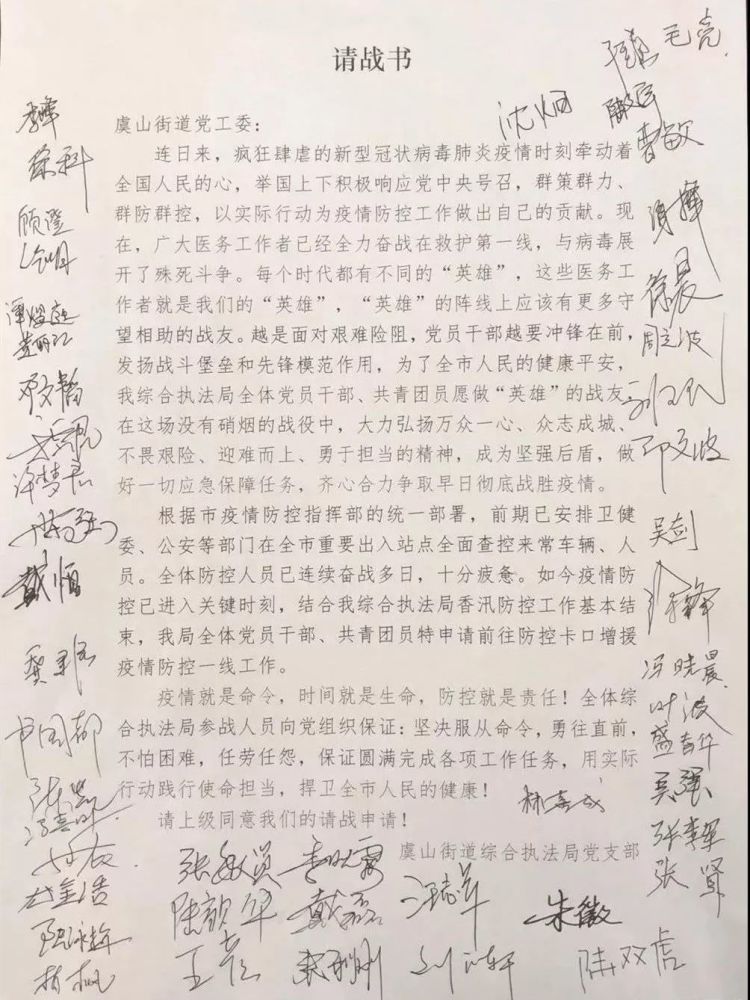 请战书
虞山街道党工委：
连日来，疯狂肆虐的新型冠状病毒肺炎疫情时刻牵动着
全国人民的心，举国上下积极响应党中央号召，群策群力、
群防群控，以实际行动为疫情防控工作做出自己的贡献。现
在，广大医务工作者已经全力奋战在救护第一线，与病毒展
开了殊死斗争。每个时代都有不同的“英雄”，这些医务工
作者就是我们的“英雄”，“英雄”的阵线上应该有更多守
望相助的战友。越是面对艰难险阻，党员干部越要冲锋在前，
发扬战斗堡垒和先锋模范作用，为了全市人民的健康平安，
我综合执法局全体党员干部、共青团员愿做“英雄”的战友，
在这场没有硝烟的战役中，大力弘扬万众一心、众志成城、
不畏艰险、迎难而上、勇于担当的精神，成为坚强后盾，做
好一切应急保障任务，齐心合力争取早日彻底战胜疫情。
根据市疫情防控指挥部的统一部署，前期已安排卫健
委、公安等部门在全市重要出入站点全面查控来常车辆、人
员。全体防控人员已连续奋战多日，十分疲惫。如今疫情防
控已进入关键时刻，结合我综合执法局香汛防控工作基本结
束，我局全体党员干部、共青团员特申请前往防控卡口增援
疫情防控一线工作。
疫情就是命令，时间就是生命，防控就是责任！全体综
合执法局参战人员向党组织保证：坚决服从命令，勇往直前，
不怕困难，任劳任怨，保证圆满完成各项工作任务，用实际
行动践行使命担当，捍卫全市人民的健康！
请上级同意我们的请战申请！
虞山街道综合执法局党支部
毛亮
曹敏
徐晨
周志波
邓文波
吴剑
冯晓晨
叶波
盛青华
吴强
张李军
张贤
李峰
徐科
顾滢
邓文韬
许梦君
戴恒
张敏员
李晓霖
陆颖华
戴磊
汪志萍
朱徽
陆双虎